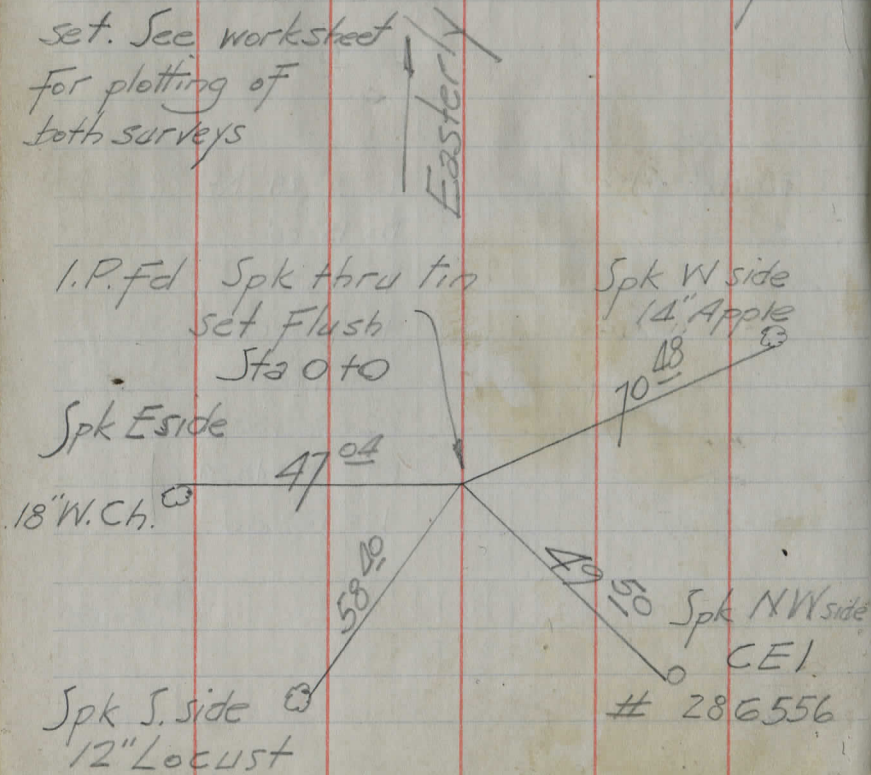 set. See worksheet
for plotting of
both surveys
Easterly
I.P. Fd Spk thru tin
set Flush
Sta 0 to 0
Spk W side
14" Apple
70 48
Spk E side
47 04
18" W. Ch.
58 40
49 50
Spk NW side
CEI
# 286556
Spk S. side
12" Locust